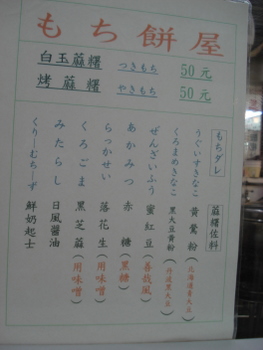 もち餅屋
白玉蔴糬 つきもち 50元
烤蔴糬 やきもち 50元
もちダレ 蔴糬佐料
うぐいすきなこ 黃鶯粉(北海道青大豆)
くろまめきなこ 黑大豆黃粉(丹波黑大豆)
ぜんざいふう 蜜紅豆(善哉風)
あかみつ 赤糖(黑糖)
らっかせい 落花生(用味噌)
くろごま 黑芝蔴(用味噌)
みたらし 日風醬油
くりーむちーず 鮮奶起士